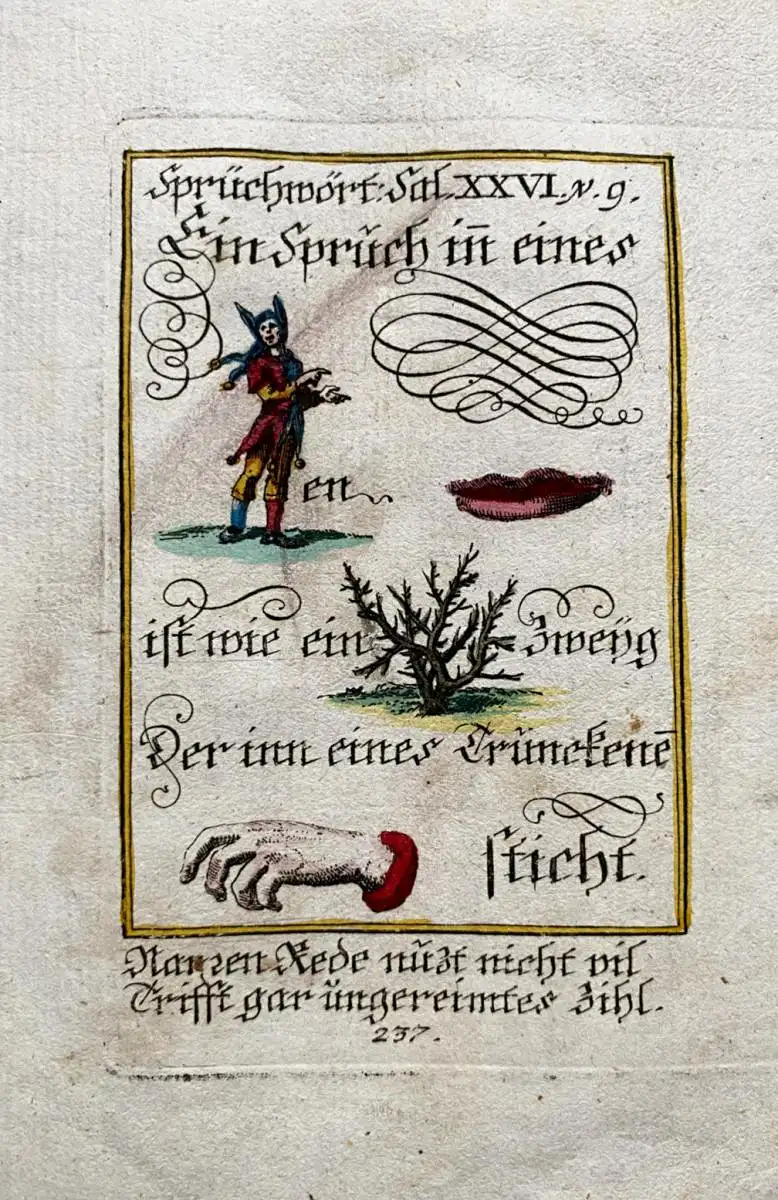 Sprüchwört: Sal. XXVI. v. 9.
Ein Sprŭch iñ eines
en
ist wie ein Zweÿg
Der inn eines Trŭnckenē
sticht.
Narren Rede nŭzt nicht vil
Trifft gar ŭngereimtes Zihl.
237.